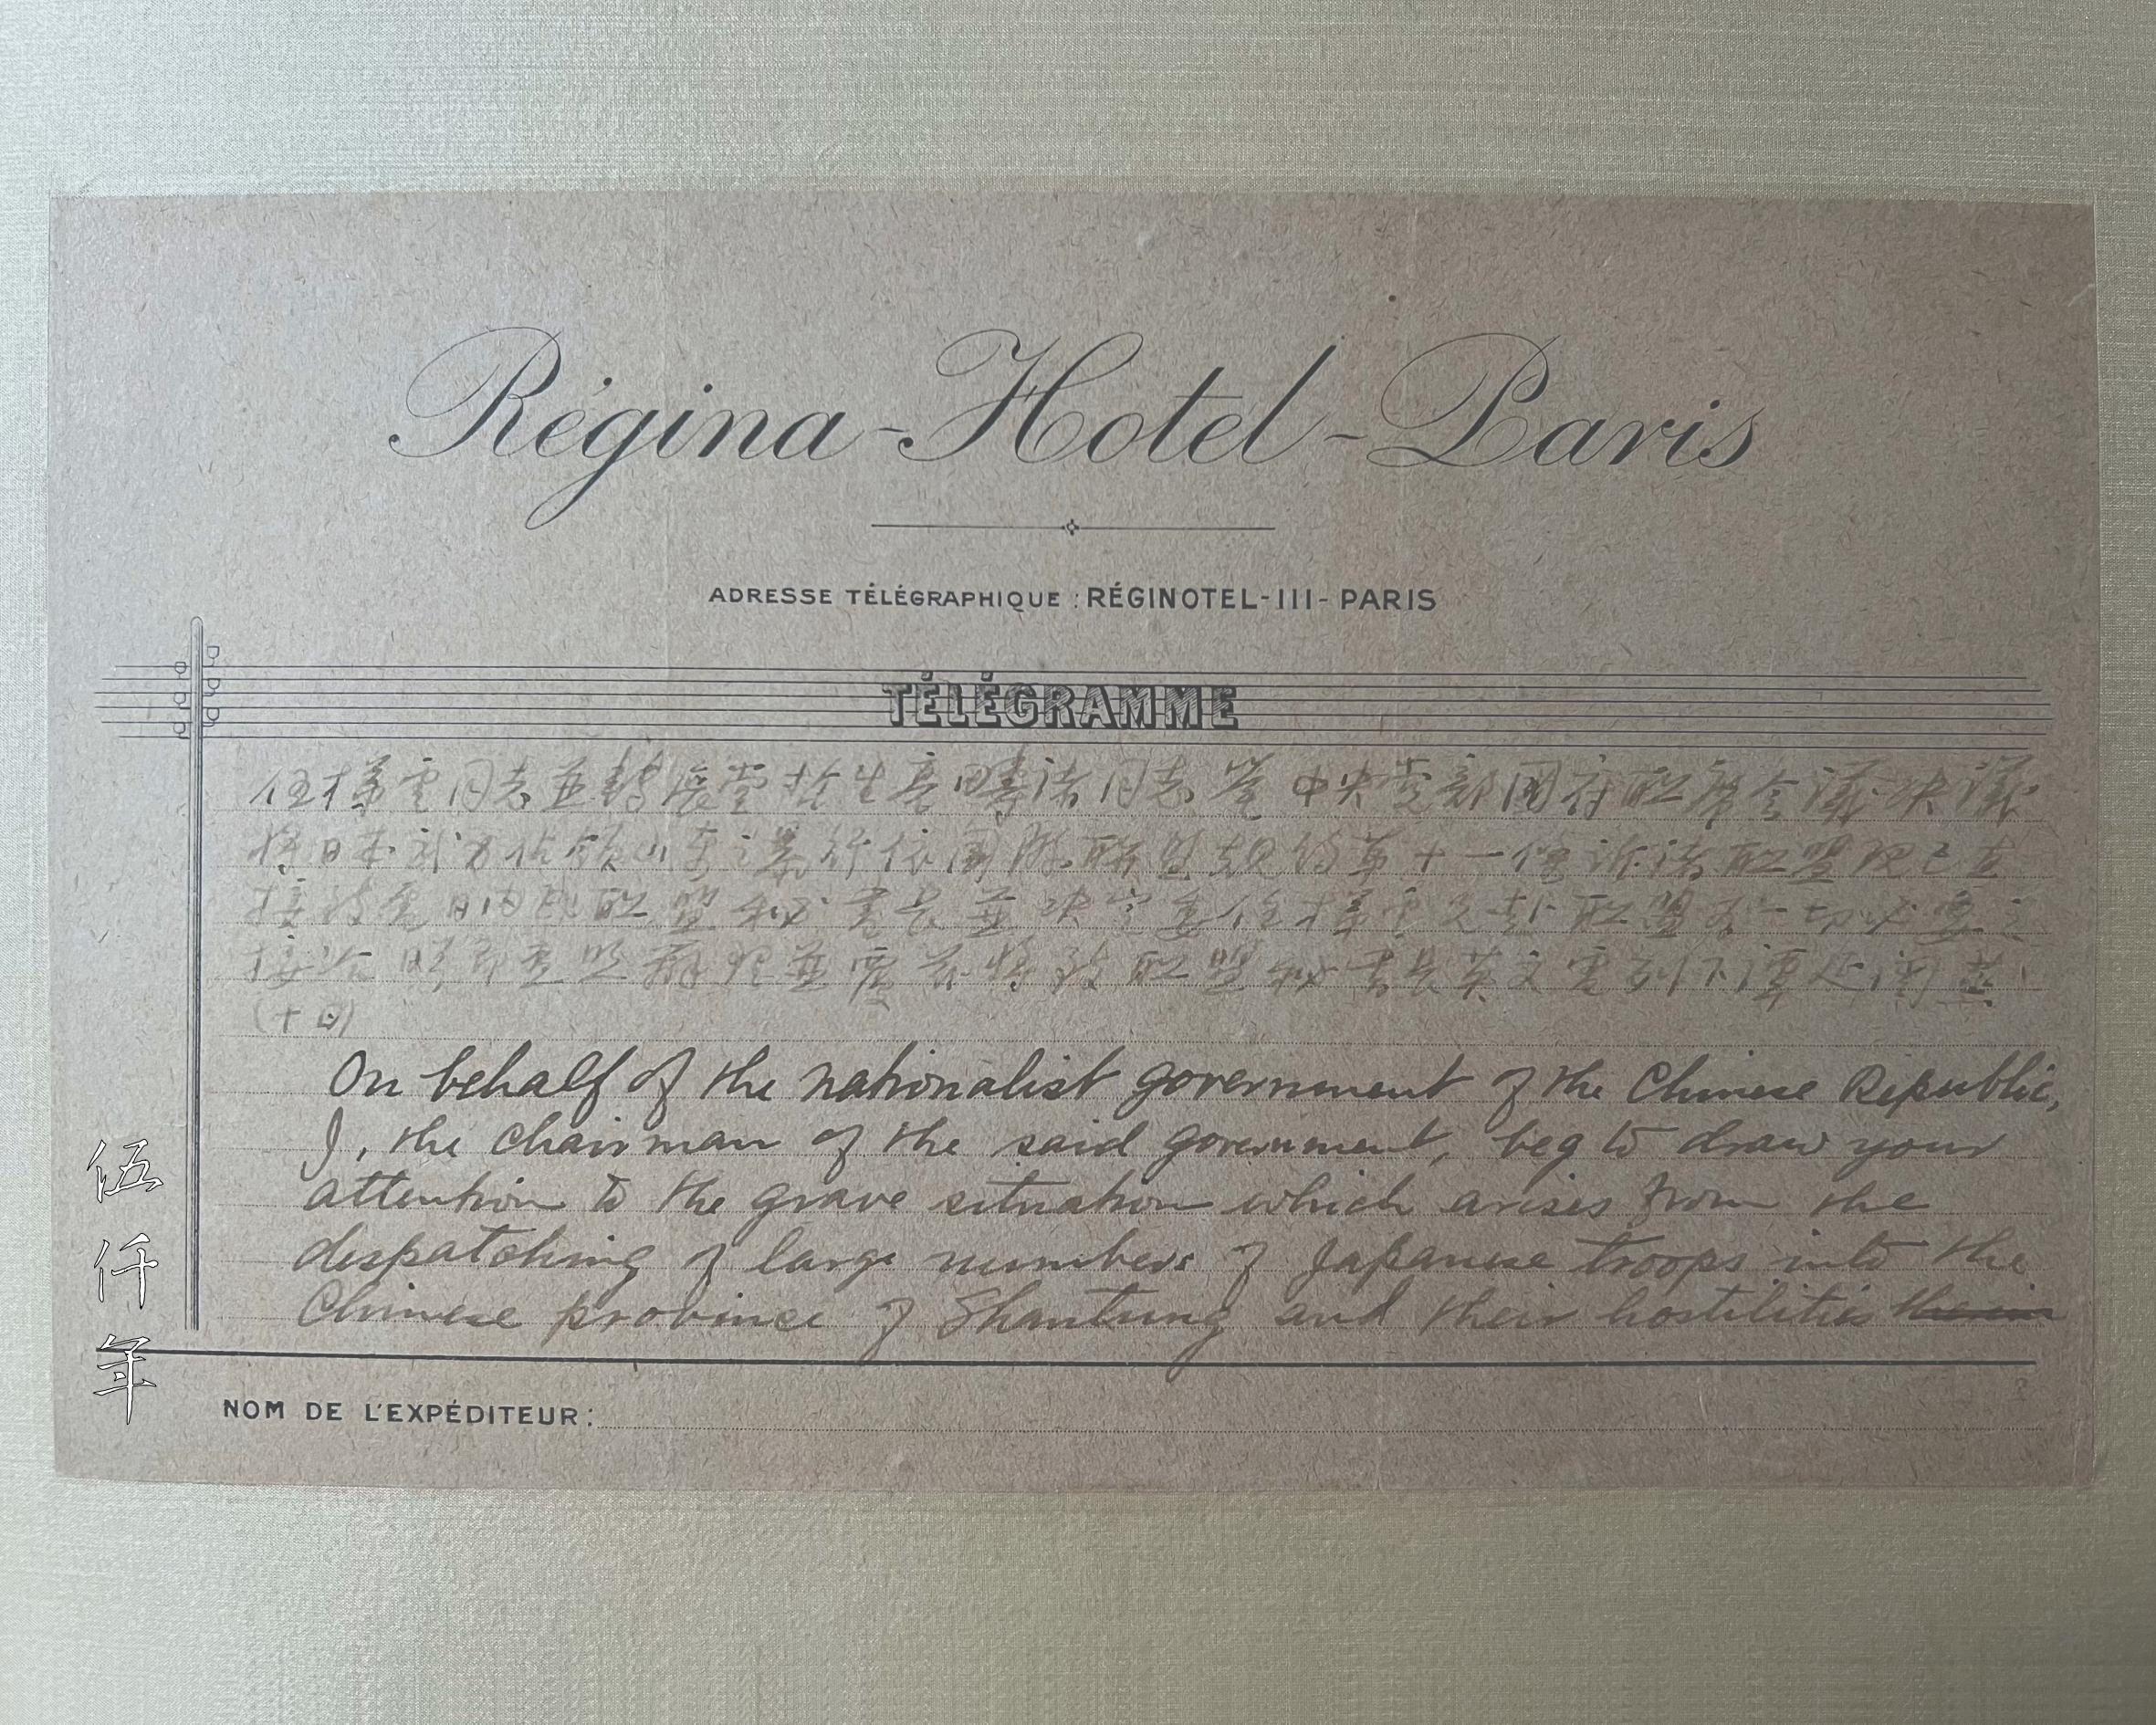 Régina-Hotel-Paris
ADRESSE TÉLÉGRAPHIQUE : RÉGINOTEL-III-PARIS
TÉLÉGRAMME
伍梯雲同志並轉展堂哲生亮疇諸同志 中央黨部國府聯席會議決議
將日本武力佔領山東之舉 依國際聯盟規約第十一條訴諸聯盟及已直
接致電日內瓦聯盟秘書長並決定 伍梯雲 赴聯盟為一切必要之
接洽 將致聯盟秘書長英文電列下譚延闓
On behalf of the nationalist government of the Chinese Republic,
I, the Chairman of the said government, beg to draw your
attention to the grave situation which arises from the
despatching of large numbers of Japanese troops into the
Chinese province of Shantung and their hostilities therein
NOM DE L'EXPÉDITEUR:
伍仟年